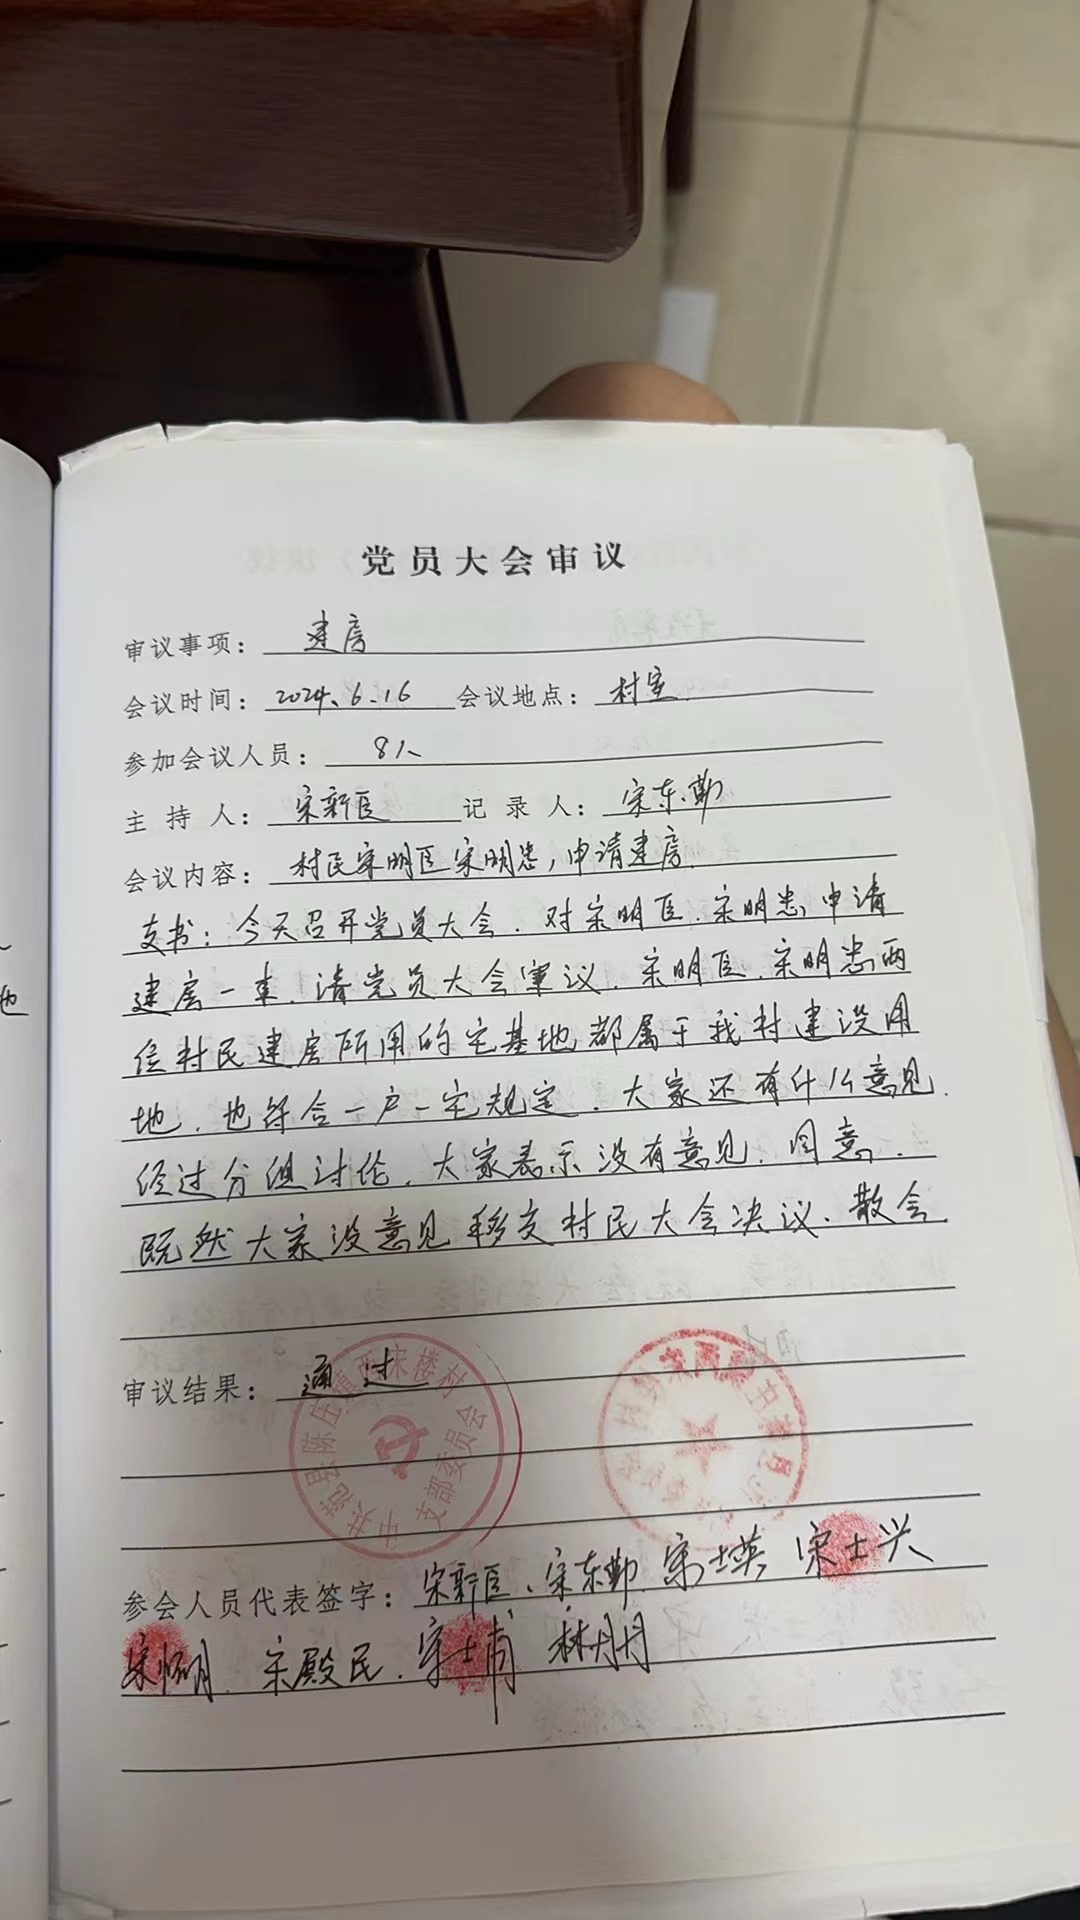 党员大会审议
审议事项： 建房
会议时间： 2024.6.16 会议地点： 村室
参加会议人员： 8人
主持人： 宋新臣 记录人： 宋东勤
会议内容： 村民宋明臣宋明忠，申请建房
支书：今天召开党员大会．对宋明臣．宋明忠申请
建房一事．请党员大会审议．宋明臣．宋明忠两
位村民建房所用的宅基地都属于我村建设用
地．也符合一户一宅规定．大家还有什么意见．
经过分组讨论．大家表示没有意见．同意．
既然大家没意见移交村民大会决议．散会
审议结果： 通过
中共范县陈庄镇西宋楼村
支部委员会
参会人员代表签字： 宋新臣、宋东勤．宋士英 宋士兴
宋怀明．宋殿民．宋士甫 林丹丹
地